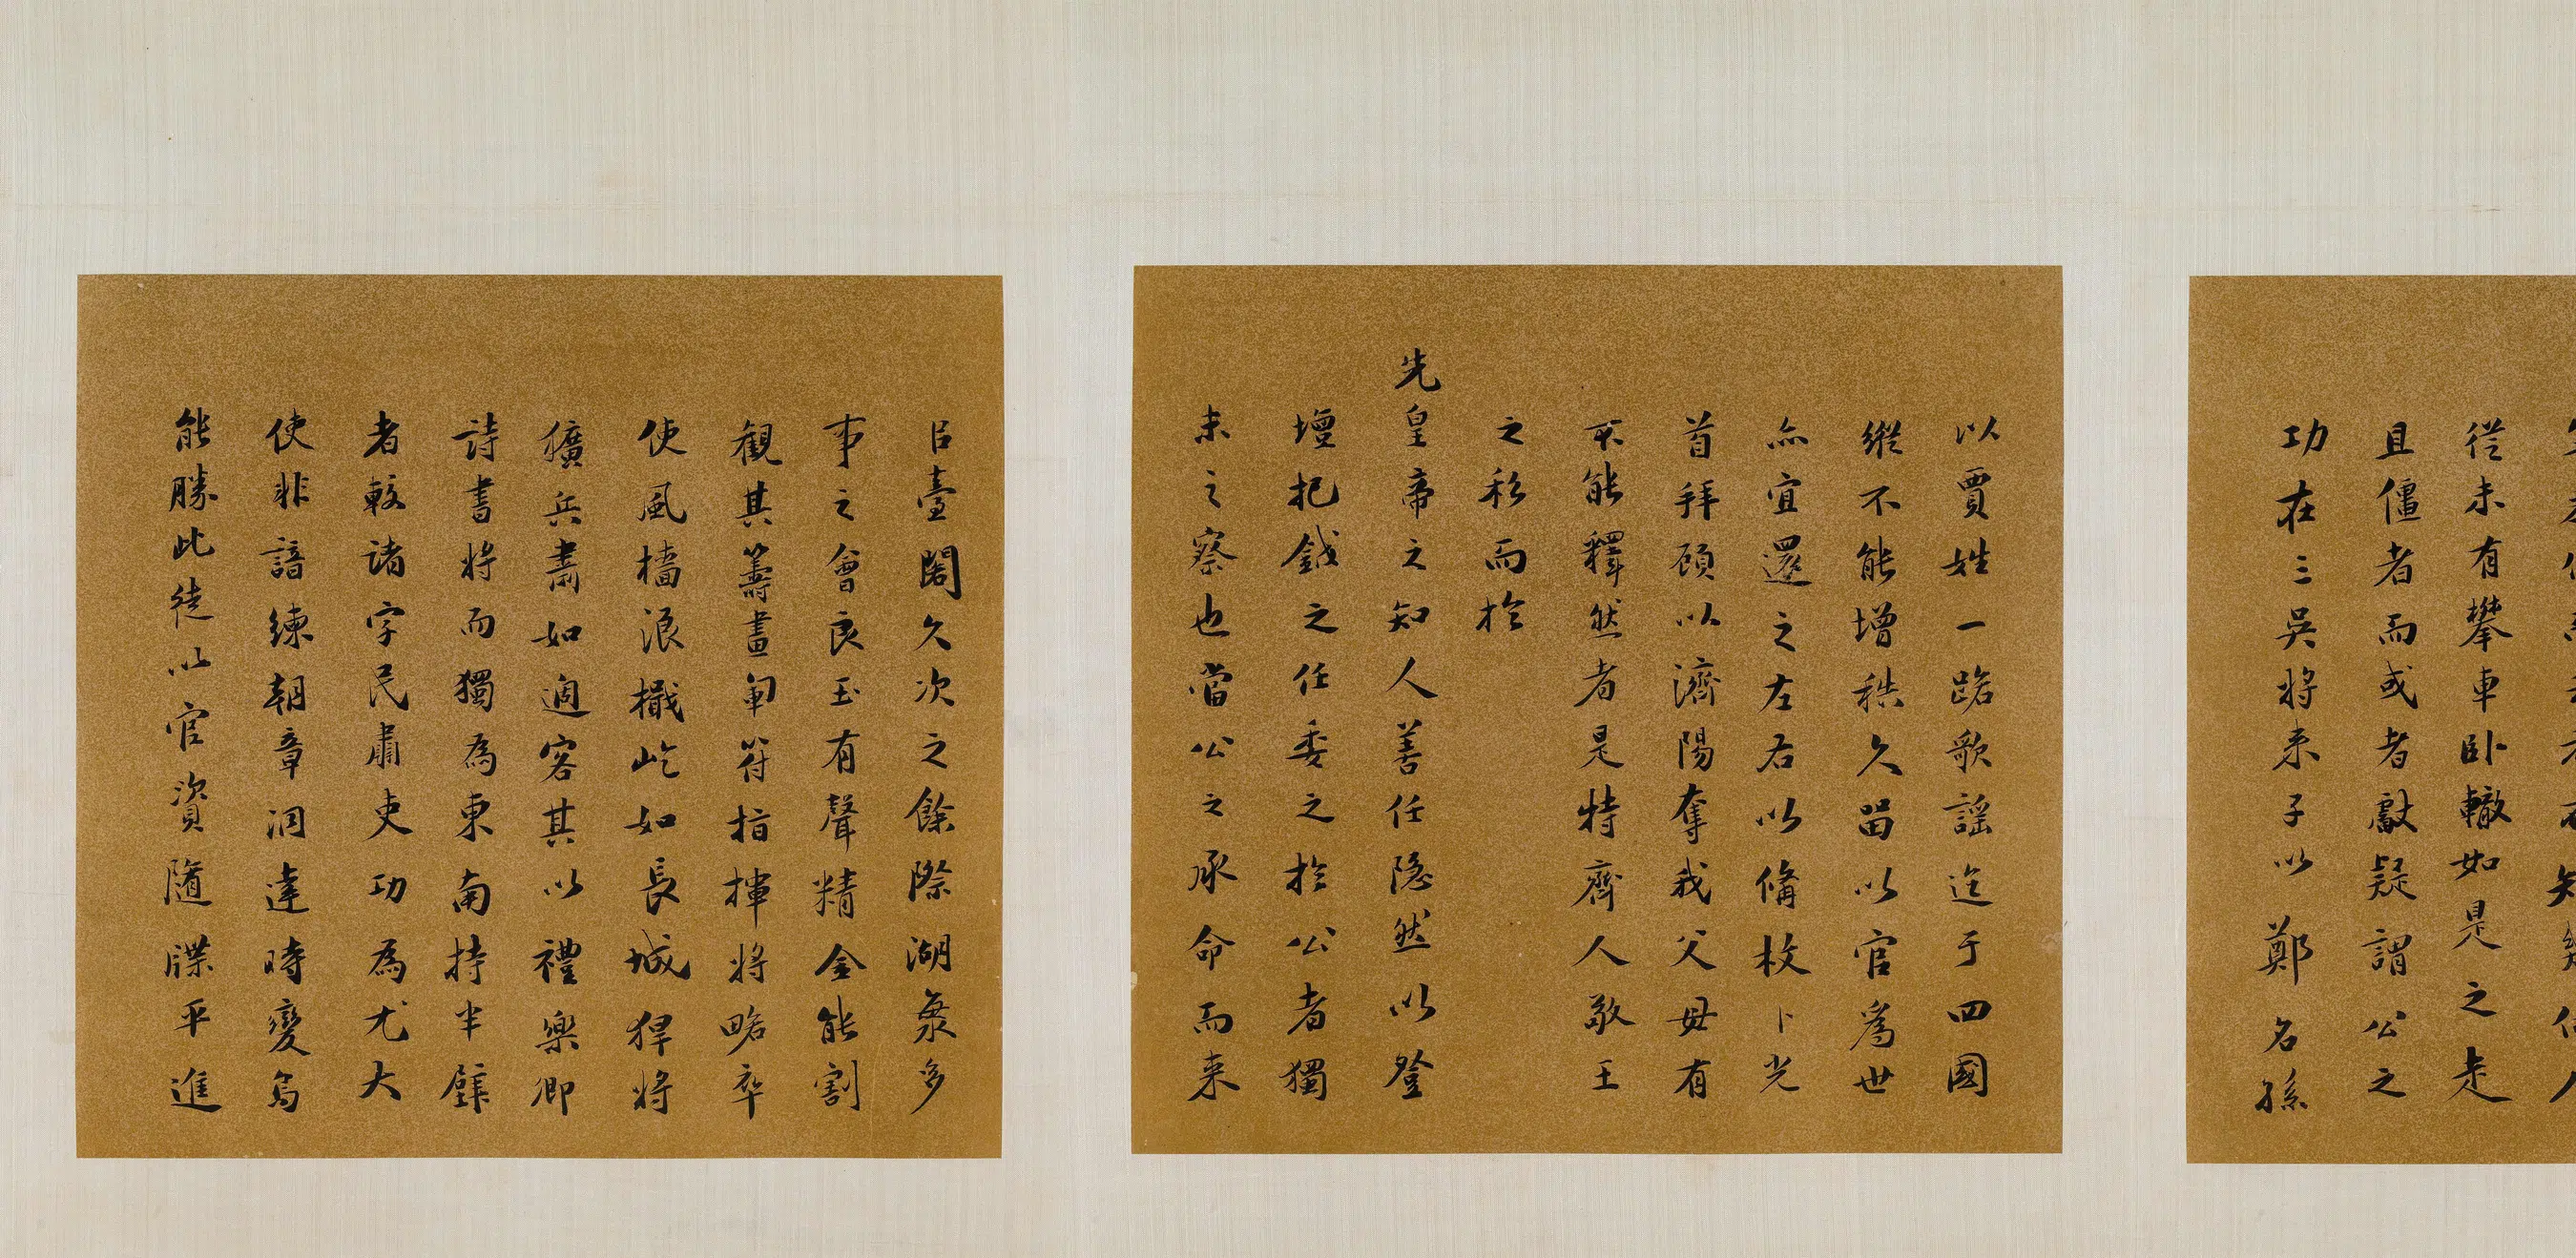 從未有攀車卧轍如是之走
且僵者而或者獻疑謂公之
功在三吳將來子以鄭名孫
以賈姓一路歌謡迄于四國
縱不能增秩久留以官為世
亦宜還之左右以備枚卜光
首拜頋以濟陽奪我父毋有
不能釋然者是特齊人敬王
之私而於
先皇帝之知人善任隐然以登
壇把鉞之任委之於公者獨
未之察也當公之承命而来
臣臺閣久次之餘際湖氛多
事之會良玉有聲精金能割
観其籌畫軍符指揮将略卒
使風檣浪檝屹如長城猂將
獷兵肅如適客其以禮樂御
詩書將而獨為東南持半壁
者較諸字民肅吏功為尤大
使非諳練朝章洞達時變烏
能勝此徒以官資隨牒平進